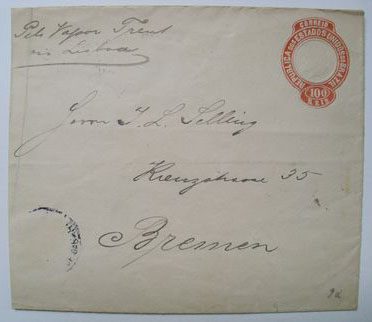 Pelo Vapor Trent
via Lisboa
CORREIO
REPUBLICA DOS ESTADOS UNIDOS DO BRAZIL
100
REIS
Herrn J. L. Selling
35
Bremen